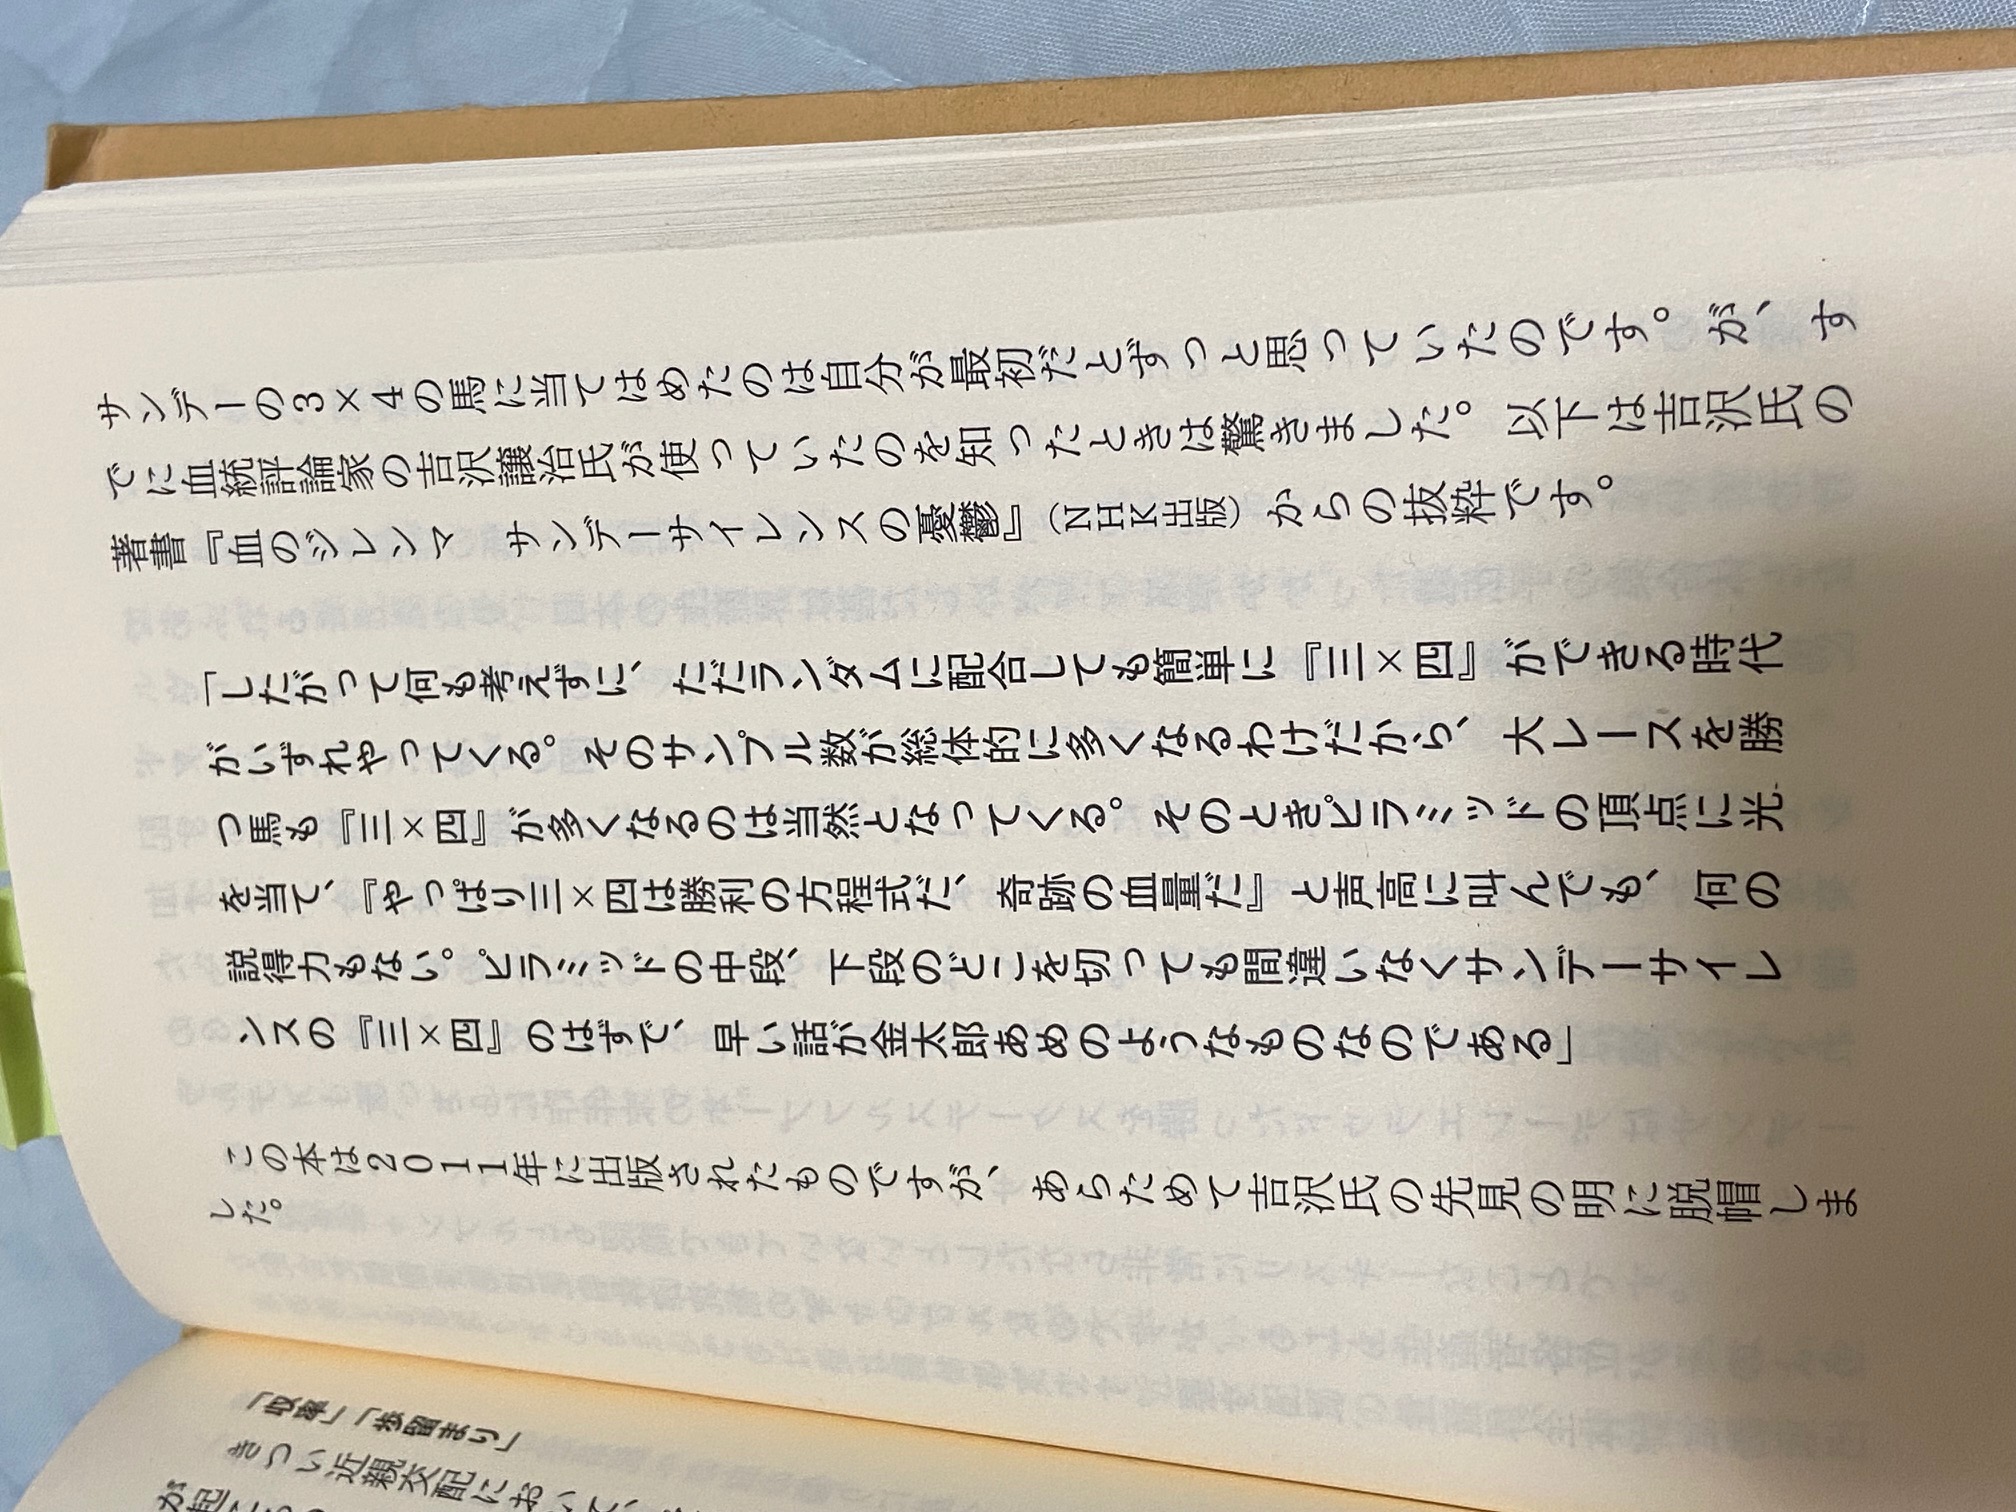 サンデーの3×4の馬に当てはめたのは自分が最初だとずっと思っていたのです。が、す
でに血統評論家の吉沢譲治氏が使っていたのを知ったときは驚きました。以下は吉沢氏の
著書『血のジレンマ　サンデーサイレンスの憂鬱』（NHK出版）からの抜粋です。
「したがって何も考えずに、ただランダムに配合しても簡単に『三×四』ができる時代
がいずれやってくる。そのサンプル数が総体的に多くなるわけだから、大レースを勝
つ馬も『三×四』が多くなるのは当然となってくる。そのときピラミッドの頂点に光
を当て、『やっぱり三×四は勝利の方程式だ、奇跡の血量だ』と声高に叫んでも、何の
説得力もない。ピラミッドの中段、下段のどこを切っても間違いなくサンデーサイレ
ンスの『三×四』のはずで、早い話が金太郎あめのようなものなのである」
この本は2011年に出版されたものですが、あらためて吉沢氏の先見の明に脱帽しま
した。
「収率」「歩留まり」
きつい近親交配において、